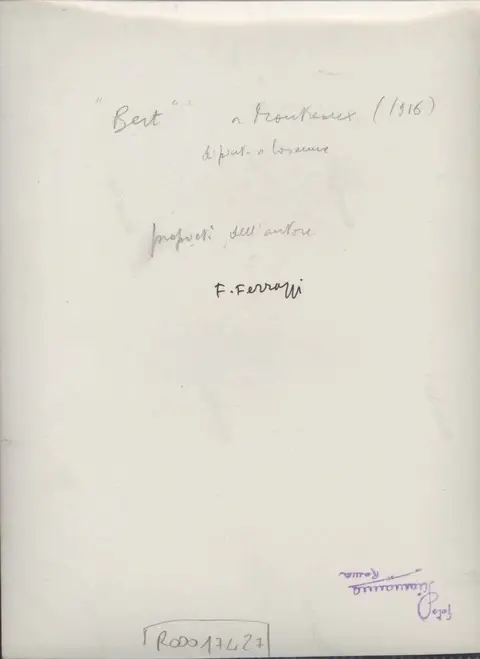 "Bert" a Montreux (1916)
dipint. a Losanna
propriet. dell'autore
F. Ferrazzi
Foto
Roma
R00017427